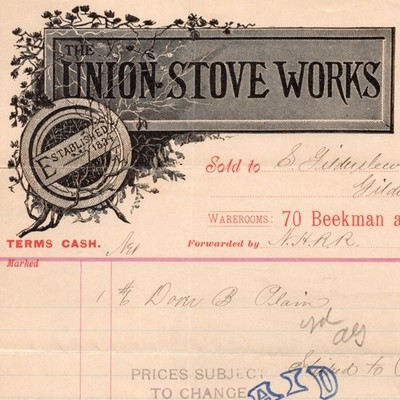 THE
UNION STOVE WORKS
ESTABLISHED 1837
Sold to E Gilderslee
Gilde
WAREROOMS: 70 Beekman a
TERMS CASH. Net Forwarded by N.H.R.R.
Marked
1 #6 Door B Plain
PRICES SUBJECT
TO CHANGE
PAID